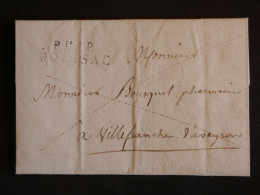 P.P.P.
MOISSAC
Monsieur
Monsieur Bousquet pharmacien
à Villefranche d'aveyron